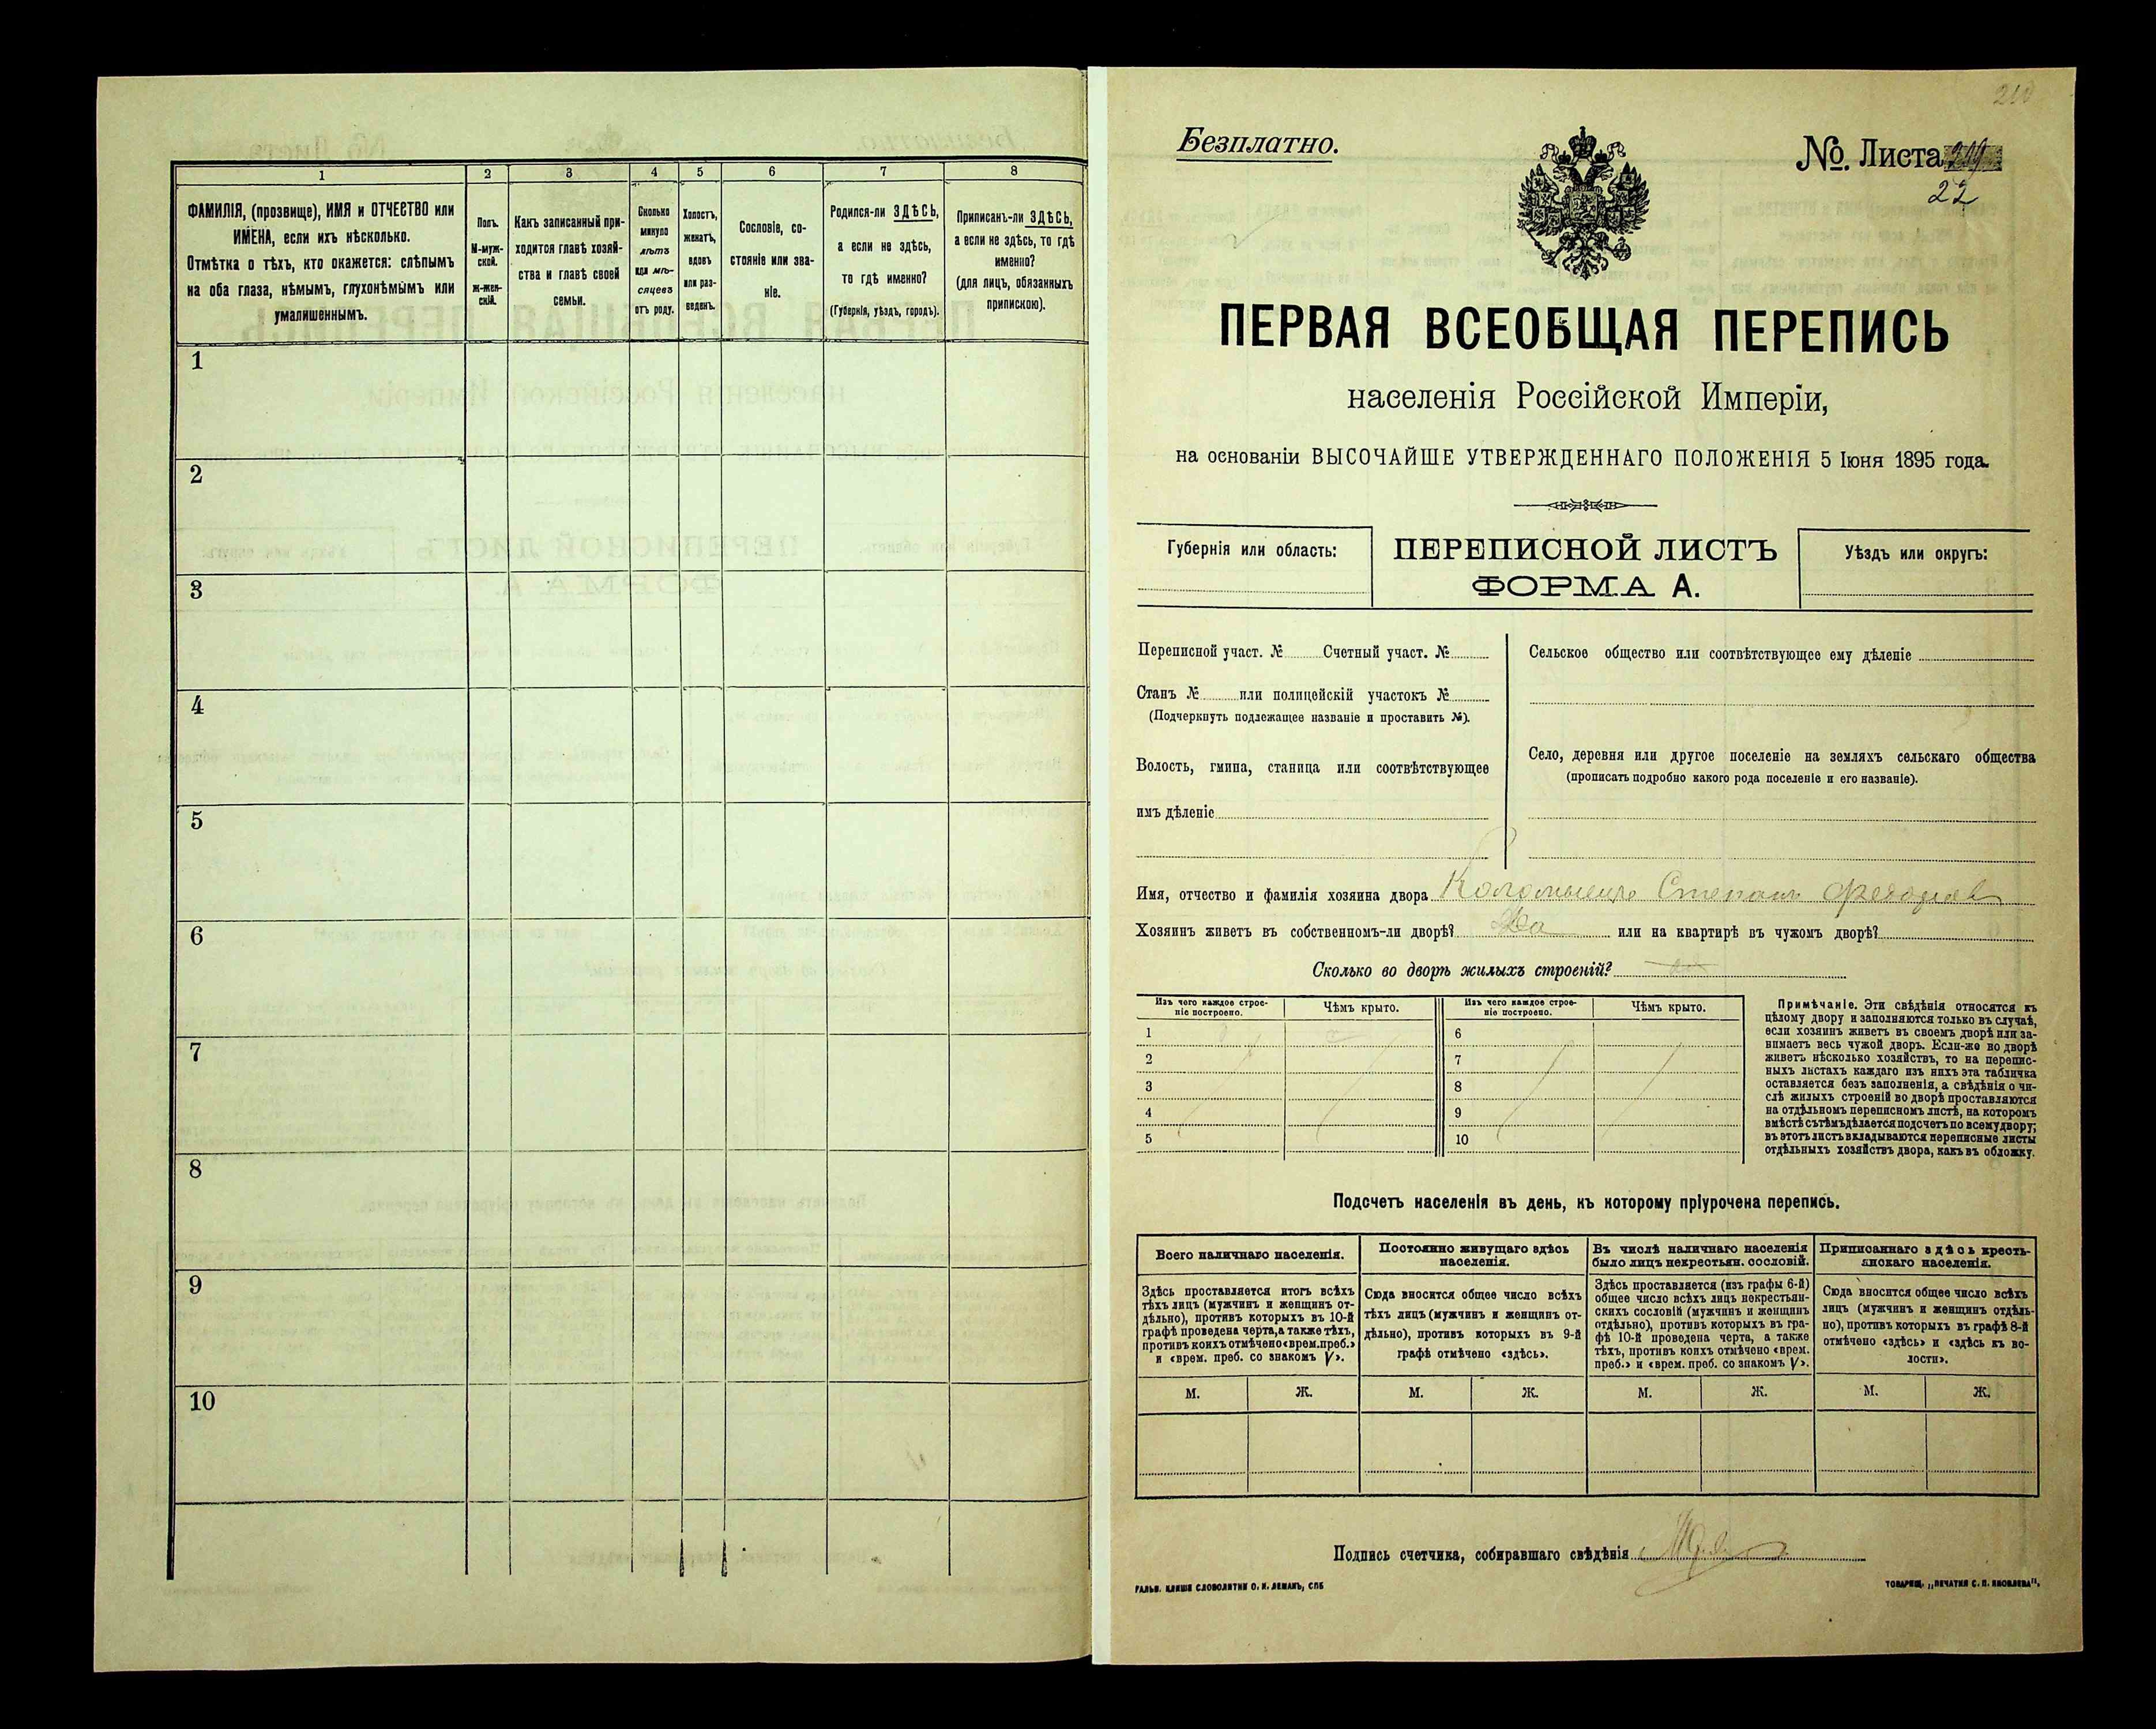 1
2
3
4
5
6
7
8
ФАМИЛІЯ, (прозвище), ИМЯ и ОТЧЕСТВО или
ИМЕНА, если ихъ нѣсколько.
Отмѣтка о тѣхъ, кто окажется: слѣпымъ
на оба глаза, нѣмымъ, глухонѣмымъ или
умалишеннымъ.
Полъ.
М-муж-
ской.
Ж-жен-
скій.
Какъ записанный при-
ходится главѣ хозяй-
ства и главѣ своей
семьи.
Сколько
минуло
лѣтъ
или мѣ-
сяцевъ
отъ роду.
Холостъ,
женатъ,
вдовъ
или раз-
веденъ.
Сословіе, со-
стояніе или зва-
ніе.
Родился-ли ЗДѢСЬ,
а если не здѣсь,
то гдѣ именно?
(Губернія, уѣздъ, городъ).
Приписанъ-ли ЗДѢСЬ,
а если не здѣсь, то гдѣ
именно?
(для лицъ, обязанныхъ
припискою).
1
2
3
4
5
6
7
8
9
10
Безплатно.
№ Листа
22
ПЕРВАЯ ВСЕОБЩАЯ ПЕРЕПИСЬ
населенія Россійской Имперіи,
на основаніи ВЫСОЧАЙШЕ УТВЕРЖДЕННАГО ПОЛОЖЕНІЯ 5 Іюня 1895 года.
Губернія или область:
ПЕРЕПИСНОЙ ЛИСТЪ
ФОРМА А.
Уѣздъ или округъ:
Переписной участ. № Счетный участ. №
Станъ № или полицейскій участокъ №
(Подчеркнуть подлежащее названіе и проставить №).
Волость, гмина, станица или соотвѣтствующее
имъ дѣленіе
Сельское общество или соотвѣтствующее ему дѣленіе
Село, деревня или другое поселеніе на земляхъ сельскаго общества
(прописать подробно какого рода поселеніе и его названіе).
Имя, отчество и фамилія хозяина двора Коломыецъ Степанъ
Хозяинъ живетъ въ собственномъ-ли дворѣ? Да или на квартирѣ въ чужомъ дворѣ?
Сколько во дворѣ жилыхъ строеній?
Изъ чего каждое строе-
ніе построено.
Чѣмъ крыто.
Изъ чего каждое строе-
ніе построено.
Чѣмъ крыто.
1
2
3
4
5
6
7
8
9
10
Примѣчаніе. Эти свѣдѣнія относятся къ
цѣлому двору и заполняются только въ случаѣ,
если хозяинъ живетъ въ своемъ дворѣ или за-
нимаетъ весь чужой дворъ. Если-же во дворѣ
живетъ нѣсколько хозяйствъ, то на перепис-
ныхъ листахъ каждаго изъ нихъ эта табличка
оставляется безъ заполненія, а свѣдѣнія о чи-
слѣ жилыхъ строеній во дворѣ проставляются
на отдѣльномъ переписномъ листѣ, на которомъ
вмѣстѣ съ тѣмъ дѣлается подсчетъ по всему двору;
въ этотъ листъ вкладываются переписные листы
отдѣльныхъ хозяйствъ двора, какъ въ обложку.
Подсчетъ населенія въ день, къ которому пріурочена перепись.
Всего наличнаго населенія.
Здѣсь проставляется итогъ всѣхъ
тѣхъ лицъ (мужчинъ и женщинъ от-
дѣльно), противъ которыхъ въ 10-й
графѣ проведена черта, а также тѣхъ,
противъ коихъ отмѣчено «врем. преб.»
и «врем. преб. со знакомъ V».
Постоянно живущаго здѣсь
населенія.
Сюда вносится общее число всѣхъ
тѣхъ лицъ (мужчинъ и женщинъ от-
дѣльно), противъ которыхъ въ 9-й
графѣ отмѣчено «здѣсь».
Въ числѣ наличнаго населенія
было лицъ некрестьян. сословій.
Здѣсь проставляется (изъ графы 6-й)
общее число всѣхъ лицъ некрестьян-
скихъ сословій (мужчинъ и женщинъ
отдѣльно), противъ которыхъ въ гра-
фѣ 10-й проведена черта, а также
тѣхъ, противъ коихъ отмѣчено «врем.
преб.» и «врем. преб. со знакомъ V».
Приписаннаго здѣсь кресть-
янскаго населенія.
Сюда вносится общее число всѣхъ
лицъ (мужчинъ и женщинъ отдѣль-
но), противъ которыхъ въ графѣ 8-й
отмѣчено «здѣсь» и «здѣсь къ во-
лости».
М. Ж. М. Ж. М. Ж. М. Ж.
Подпись счетчика, собиравшаго свѣдѣнія
ГАЛЬВ. КЛИШЕ СЛОВОЛИТНИ О. И. ЛЕМАНЪ, СПБ
ТОВАРИЩ. „ПЕЧАТНЯ С. П. ЯКОВЛЕВА“.